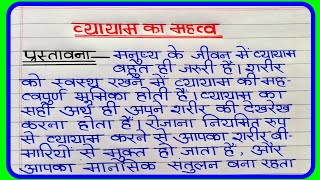 व्यायाम का महत्व
प्रस्तावना— मनुष्य के जीवन में व्यायाम
बहुत ही जरूरी है। शरीर
को स्वस्थ रखने में व्यायाम की मह-
त्वपूर्ण भूमिका होती है। व्यायाम का
सही अर्थ ही अपने शरीर की देखरेख
करना होता है। रोजाना नियमित रूप
से व्यायाम करने से आपका शरीर बी-
मारियों से मुक्त हो जाता है, और
आपका मानसिक संतुलन बना रहता